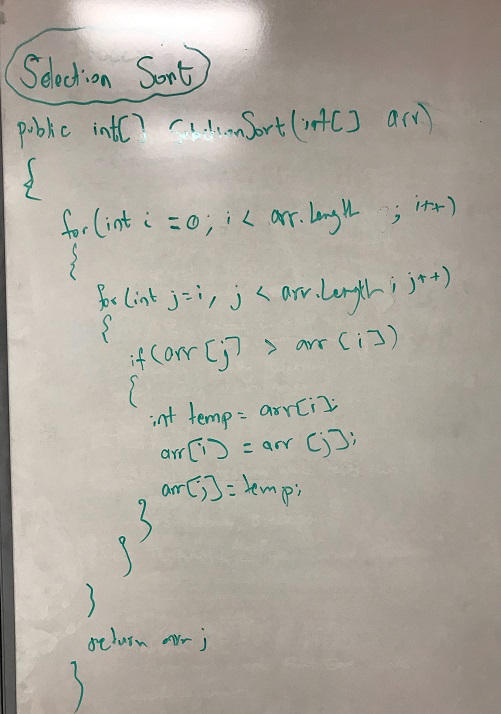 Selection Sort
public int[] SelectionSort(int[] arr)
{
for(int i = 0; i < arr.Length ; i++)
{
for(int j=i, j < arr.Length; j++)
{
if(arr[j] > arr[i])
{
int temp = arr[i];
arr[i] = arr[j];
arr[j] = temp;
}
}
}
return arr;
}